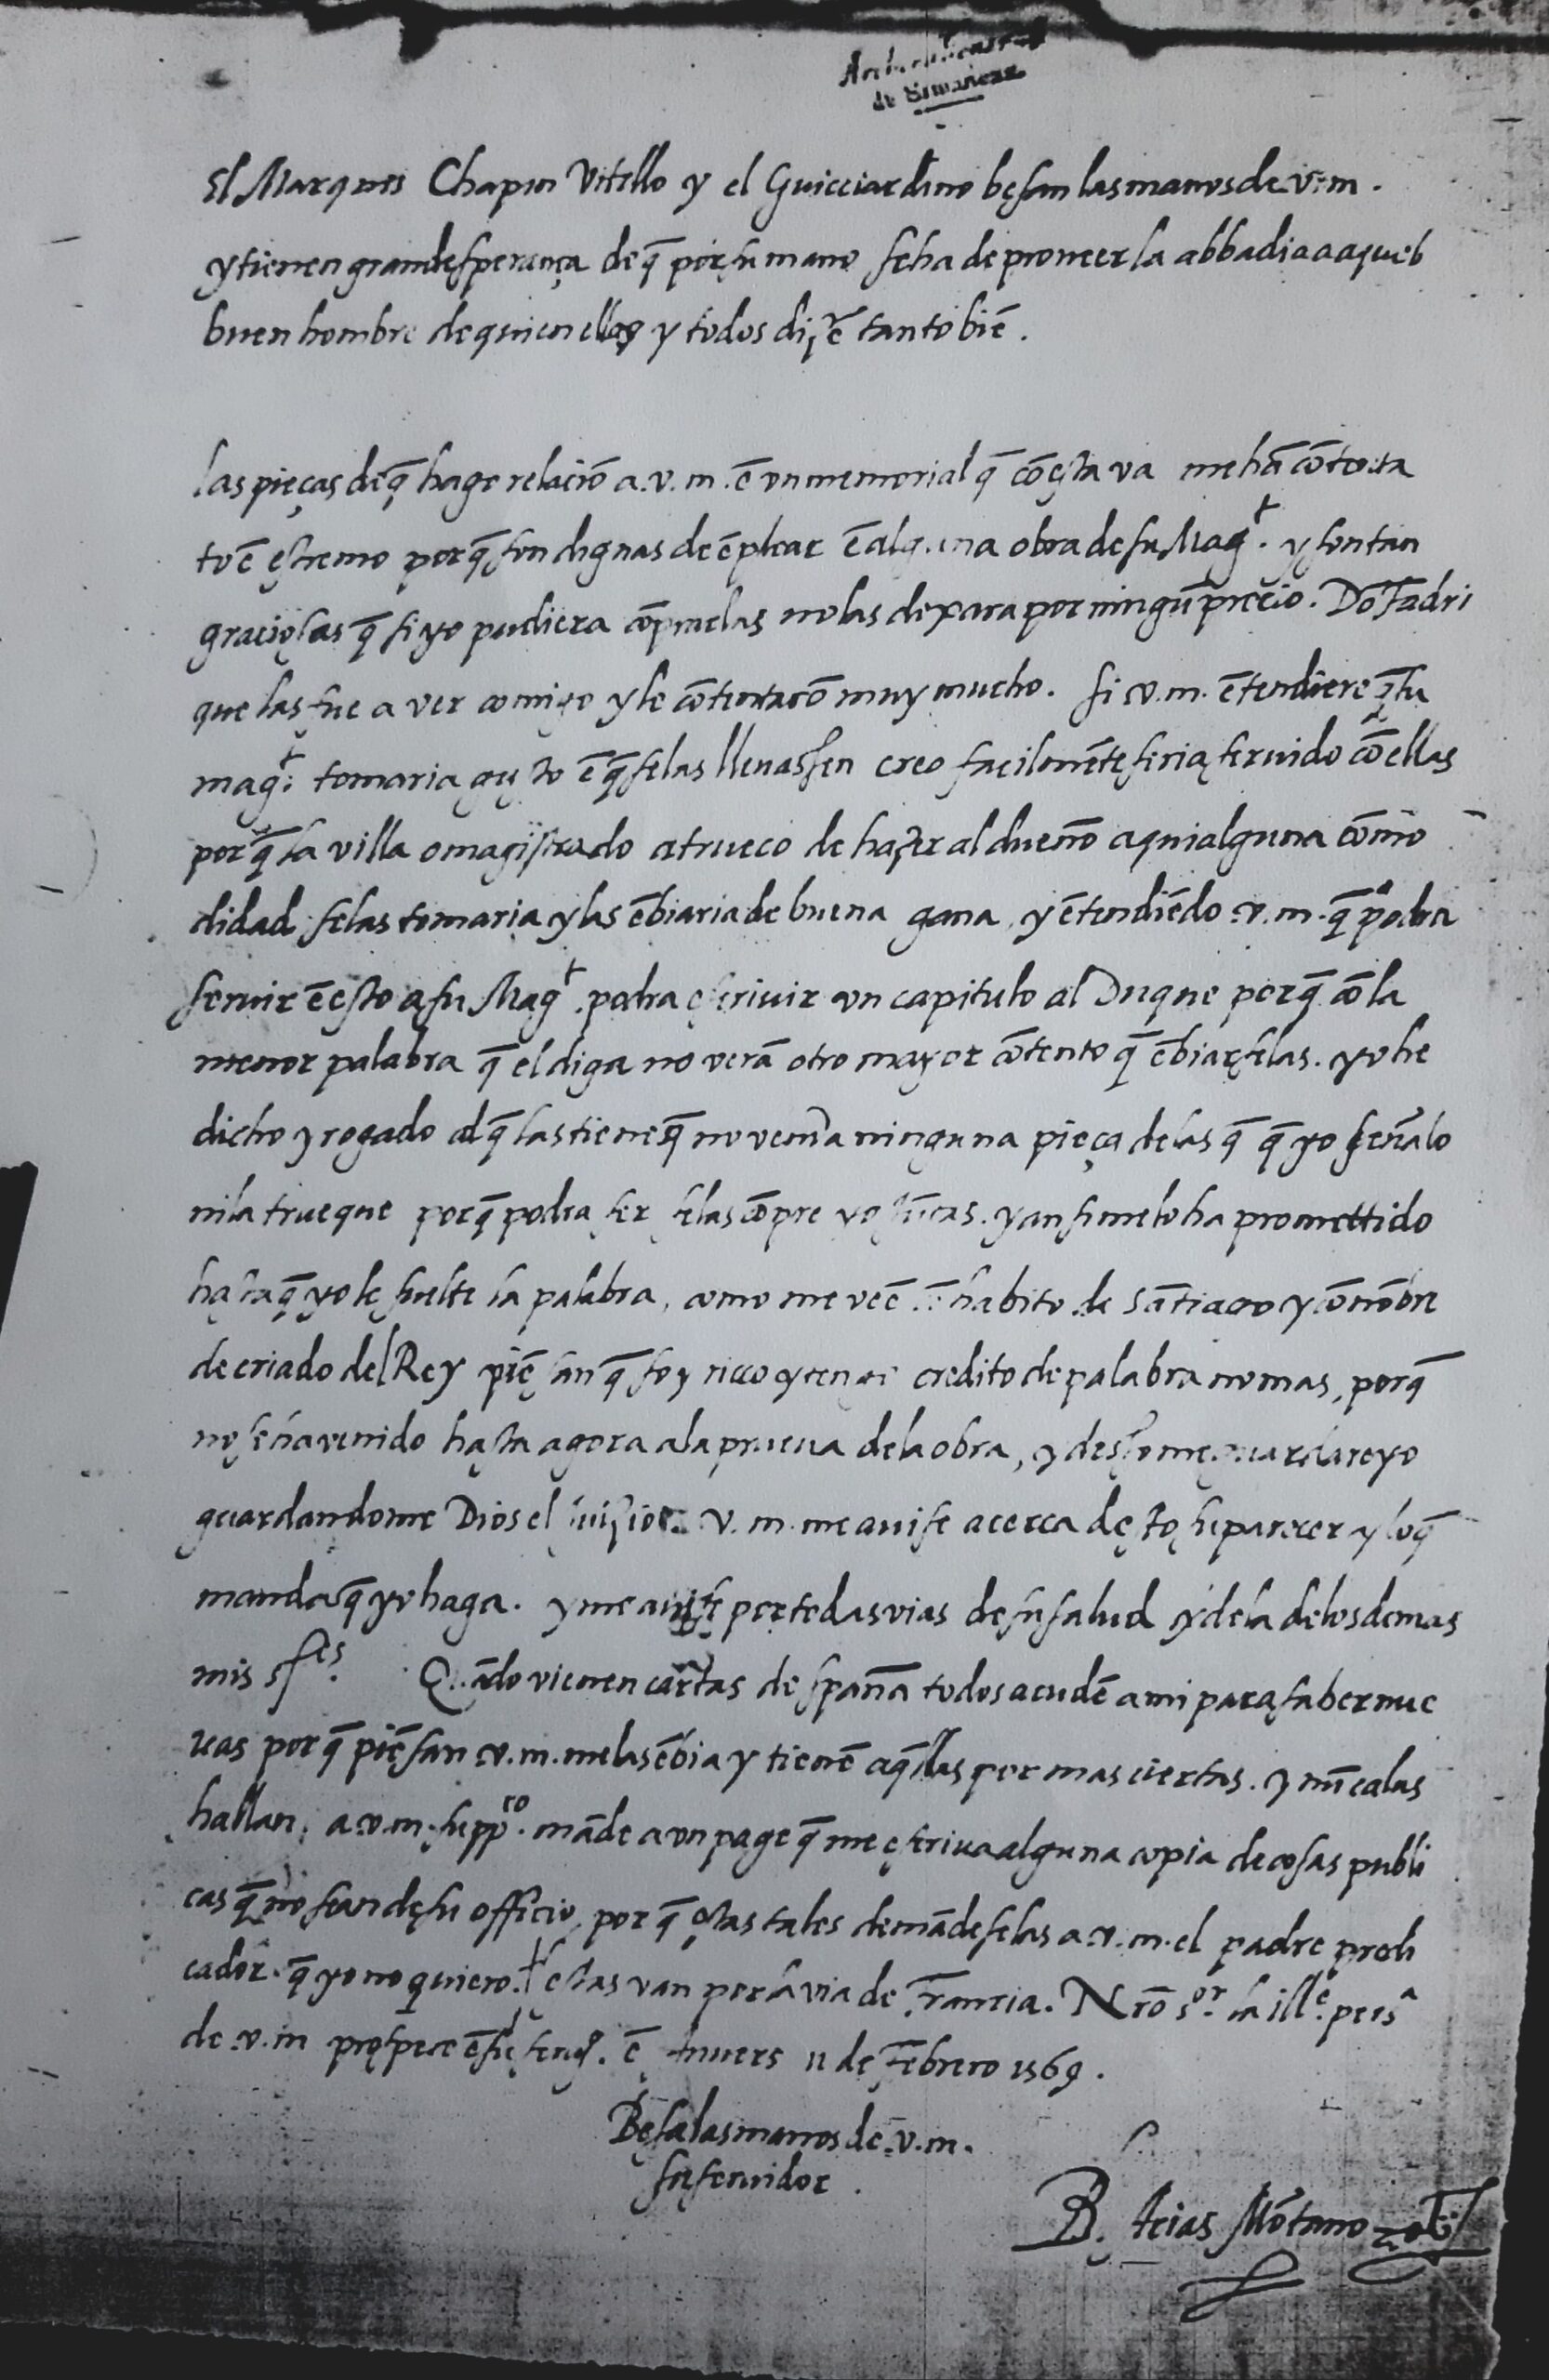 Archivo General
de Simancas
El Marques Chapin Vitello y el Guicciardino besan las manos de v.m.
y tienen grande sperança de q̄ por su mano se ha de proueer la abbadia a aquel
buen hombre de quien ellos y todos dizē tanto biē.
las pieças de q̄ hago relaciō a.v.m. ē vn memorial q̄ cō esta va me hā cōtenta
to ē estremo porq̄ son dignas de ēplear ē alguna obra de su Mag.t y son tan
graciosas q̄ si yo pudiera cōprarlas no las dexara por ningū precio. Dō Fadri
que las fue a ver comigo y le cōtentarō muy mucho. si v.m. ētendiere q̄ su
mag.t tomaria gusto ē q̄ se las lleuassen creo facilmēte seria seruido cō ellas
porq̄ la villa o magistrado a trueco de hazer al dueño aqui alguna cōmo
didad se las tomaria y las ēbiaria de buena gana, y ētendiēdo v.m. q̄ podra
seruir ē esto a su Mag.t podra escriuir vn capitulo al Duque porq̄ cō la
menor palabra q̄ el diga no verā otro mayor cōtento q̄ ēbiarselas. yo he
dicho y rogado al q̄ las tiene q̄ no venda ninguna pieça de las q̄ q̄ yo señalo
ni la trueque porq̄ podra ser se las cōpre yo juntas. y ansi me lo ha promettido
hasta q̄ yo le suelte la palabra, como me veē ē habito de Sātiago y cō nōbre
de criado del Rey piēsan q̄ soy ricco y tengo credito de palabra no mas, porq̄
no se ha venido hasta agora a la prueua de la obra, y desto me guardare yo
guardandome Dios el juizio. v.m. me auise acerca desto su parecer y lo q̄
manda q̄ yo haga. y me auise por todas vias de su salud y de la de los demas
mis s.res Quādo vienen cartas de spaña todos acudē a mi para saber nue
uas porq̄ piēsan v.m. me las ēbia y tienē aq̄llas por mas ciertas. y nūca las
hallan. a v.m. supp.co māde a vn page q̄ me escriua alguna copia de cosas publi
cas q̄ no sean de su officio, porq̄ estas tales demādeselas a v.m. el padre predi
cador. q̄ yo no quiero. estas van por la via de Francia. Nrō s.or la ill.e pers.a
de v.m prospere ē su seruj.o ē Anuers 11 de Febrero 1569.
Besa las manos de v.m.
su seruidor.
B. Arias Mōtano